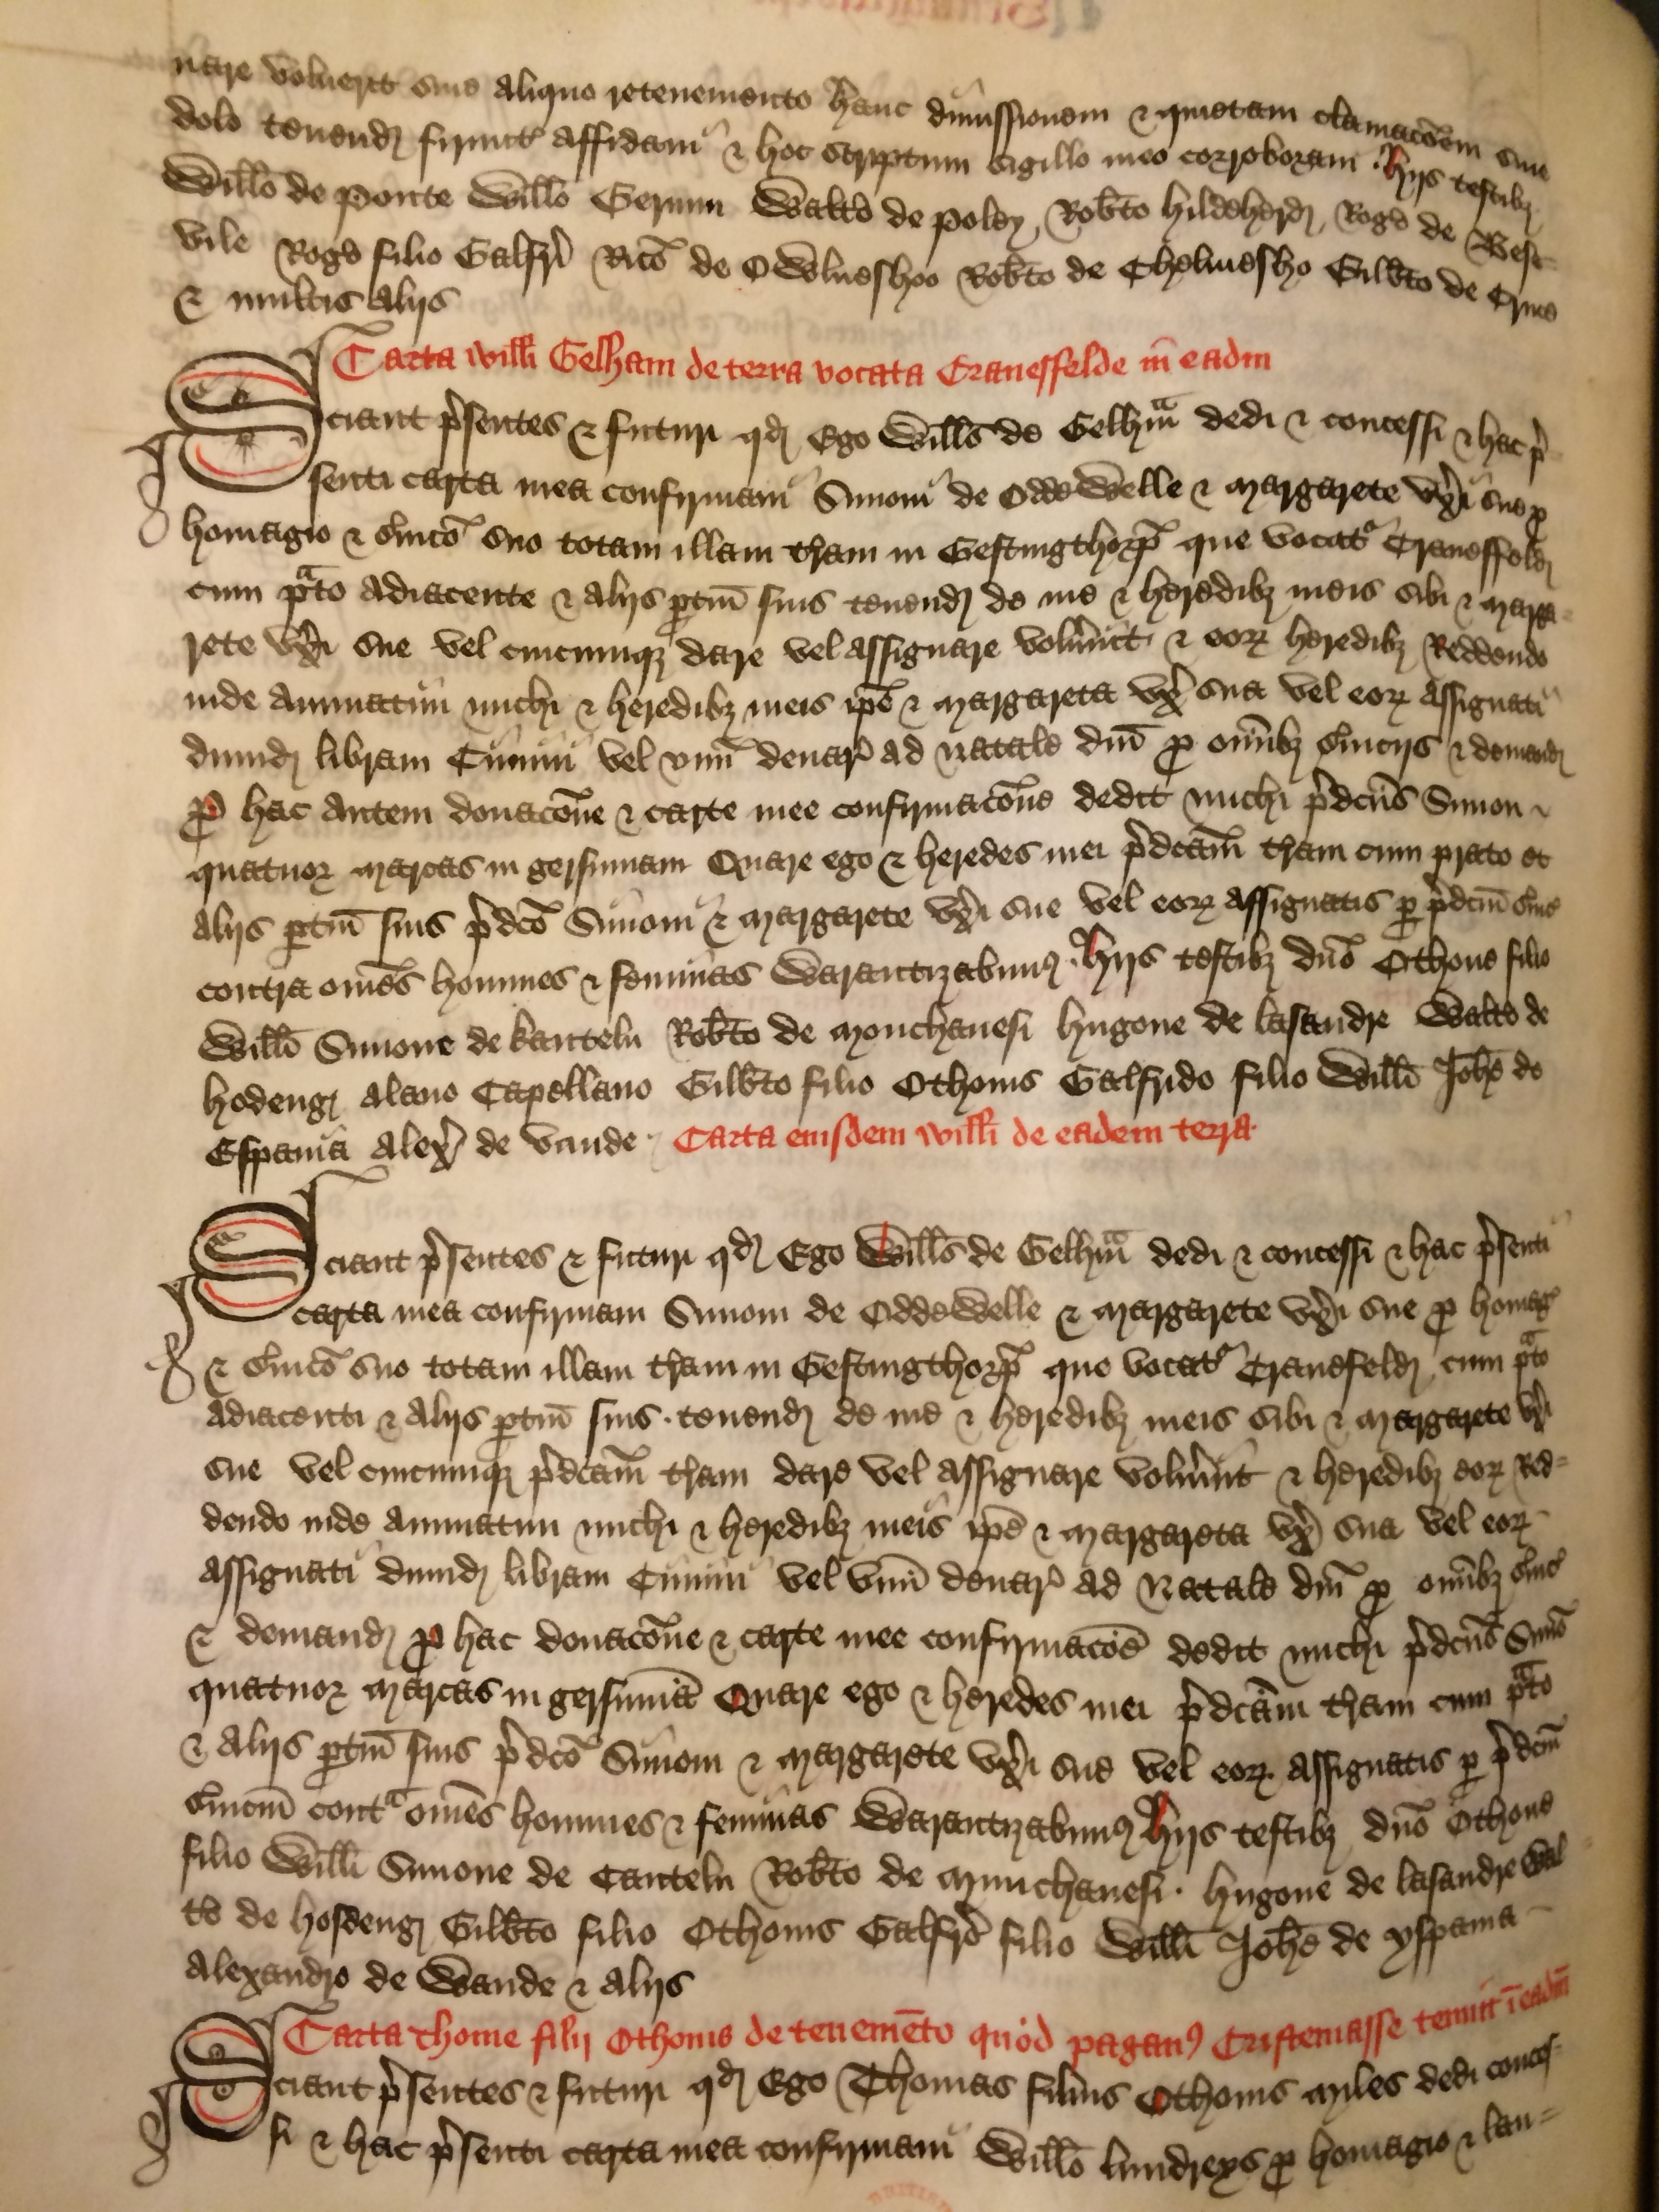 nare voluerit sine aliquo retenemento hanc dimissionem & quietam clamacōem sine
dolo tenend firmit affidaui & hoc scriptum sigillo meo corroboraui hijs testibȝ
Willo de Ponte Willo Gernun Walto de Poley Robto hildeherd Rogo de Bese
vile Rogo filio Galfri Rico de Owlueshoo Robto de Chelmesho Gilbto de
& multis alijs
Carta willi Gelham de terra vocata Cranesffelde in eadm
Sciant psentes & futuri qd Ego Wills de Gelhm dedi & concessi & hac p
senti carta mea confirmaui Simoni de Oddewelle & Margarete vxi sue p
homagio & suico suo totam illam tram in Gestingthorp que vocat Cranesffeld
cum pto adiacente & alijs ptin suis tenend de me & heredibȝ meis sibi & Marga
rete vxi sue vel cuicumqȝ dare vel assignare volunt & eoꝝ heredibȝ Reddendo
inde annuatim michi & heredibȝ meis ipe & Margareta vx sua vel eoꝝ assignati
dimid libram Cimini vel vnu denar ad Natale dni p omibȝ suicijs & demand
p hac autem donacōne & carte mee confirmacōne dedit michi pdcus Simon
quatuoꝝ marcas in gersumam Quare ego & heredes mei pdcam tram cum prato et
alijs ptin suis pdco Simoni & Margarete vxi sue vel eoꝝ assignatis p pdcm suic
contra omes homines & feminas Warantizabimꝰ hijs testibȝ dno Othone filio
Willi Simone de kantelu Robto de Monchanesi hugone de lasandre Walto de
hodeng alano Capellano Gilbto filio Othonis Galfrido filio Willi Johe de
Espania Alex de vande Carta eiusdem willi de eadem terra
Sciant psentes & futuri qd Ego Wills de Gelhm dedi & concessi & hac psenti
carta mea confirmaui Simoni de Oddewelle & Margarete vxi sue p homag
& suico suo totam illam tram in Gestingthorp que vocat Cranesfeld cum pto
adiacenti & alijs ptin suis tenend de me & heredibȝ meis sibi & Margarete vxi
sue vel cuicumqȝ pdcam tram dare vel assignare volunt & heredibȝ eoꝝ Red=
dendo inde annuatim michi & heredibȝ meis ipe & Margareta vx sua vel eoꝝ
assignati dimid libram Cimini vel vnu denar ad Natale dni p omibȝ suic
& demand p hac donacōne & carte mee confirmacōe dedit michi pdcus Simo
quatuoꝝ marcas in gersuma Quare ego & heredes mei pdcam tram cum pto
& alijs ptin suis pdco Simoni & Margarete vxi sue vel eoꝝ assignatis p pdcm
suicm cont omes homines & feminas Warantizabimꝰ hijs testibȝ dno Othone
filio Willi Simone de Cantelu Robto de Munchanesi hugone de lasandre Wal
to de hosdeng Gilbto filio Othonis Galfrid filio Willi Johe de yspania
Alexandro de Wande & alijs
Carta thome filij Othonis de tenemēto quod paganꝰ Cristemasse tenuit ī eadm
Sciant psentes & futuri qd Ego Thomas filius Othonis Myles dedi conces=
si & hac psenti carta mea confirmaui Willo lundreys p homagio & lau=